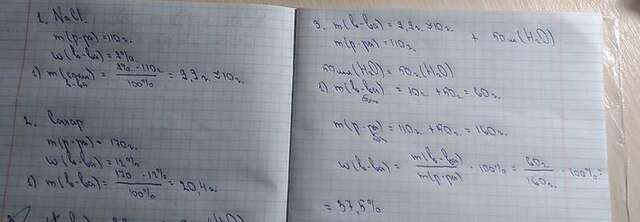 1. NaCl.
m(р-ра)=110г.
w(в-ва)=2%
1) m(соли) = 2% · 110г / 100% = 2,2г ≈ 10г.
в-ва
2. Сахар
m(р-ра) = 170г.
w(в-ва)=12%
1) m(в-ва) = 170 · 12% / 100% = 20,4г.
3. m(в-ва) = 2,2г ≈ 10г. + 50мл(H₂O)
m(р-ра) = 110г.
50мл(H₂O) = 50г(H₂O)
1) m(в-ва) = 10г + 50г = 60г.
m(р-ра) = 110г + 50г = 160г.
w(в-ва) = m(в-ва) / m(р-ра) · 100% = 60г / 160г · 100% =
= 37,5%